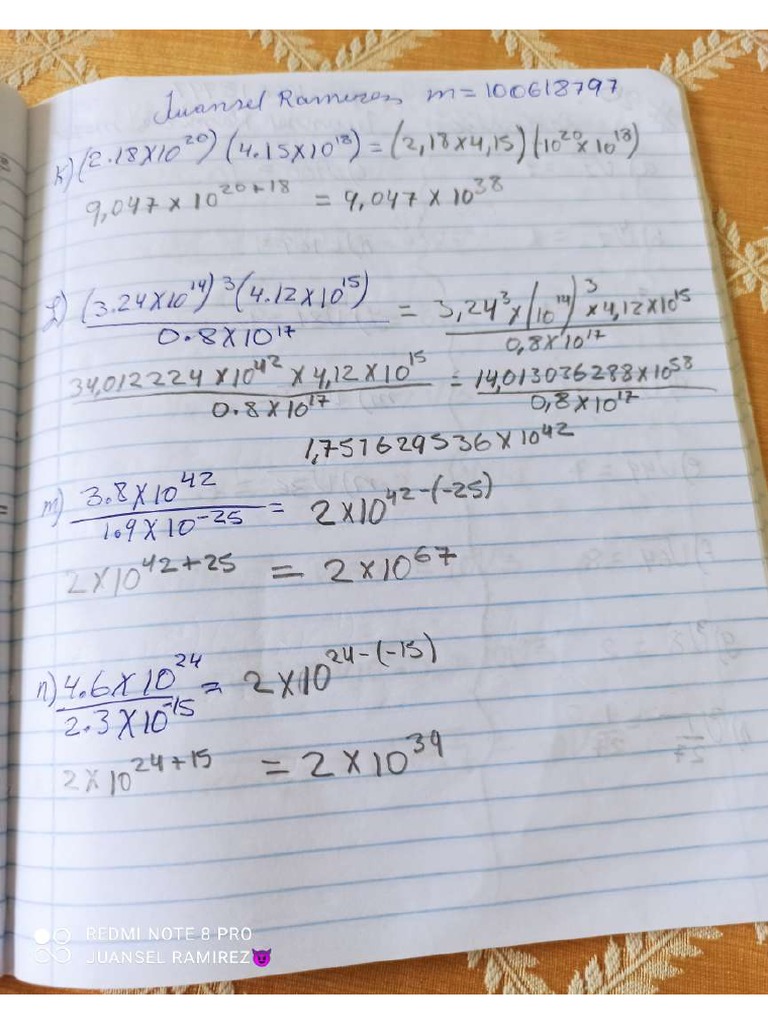 Juansel Ramirez m=100618797
K) (2.18X10²⁰) (4.15X10¹⁸) = (2,18x4,15) (10²⁰x10¹⁸)
9,047 x 10²⁰⁺¹⁸ = 9,047 x 10³⁸
L) (3.24X10¹⁴)³(4.12X10¹⁵) / 0.8X10¹⁷ = 3,24³x(10¹⁴)³x4,12x10¹⁵ / 0,8x10¹⁷
34,012224 x10⁴² x 4,12 x 10¹⁵ / 0.8x10¹⁷ = 14,013036288x10⁵⁸ / 0,8x10¹⁷
1,751629536 x10⁴²
m) 3.8X10⁴² / 1.9X10⁻²⁵ = 2x10⁴²⁻⁽⁻²⁵⁾
2X10⁴²⁺²⁵ = 2x10⁶⁷
n) 4.6X10²⁴ / 2.3X10⁻¹⁵ = 2x10²⁴⁻⁽⁻¹⁵⁾
2x10²⁴⁺¹⁵ = 2x10³⁹
REDMI NOTE 8 PRO
JUANSEL RAMIREZ😈